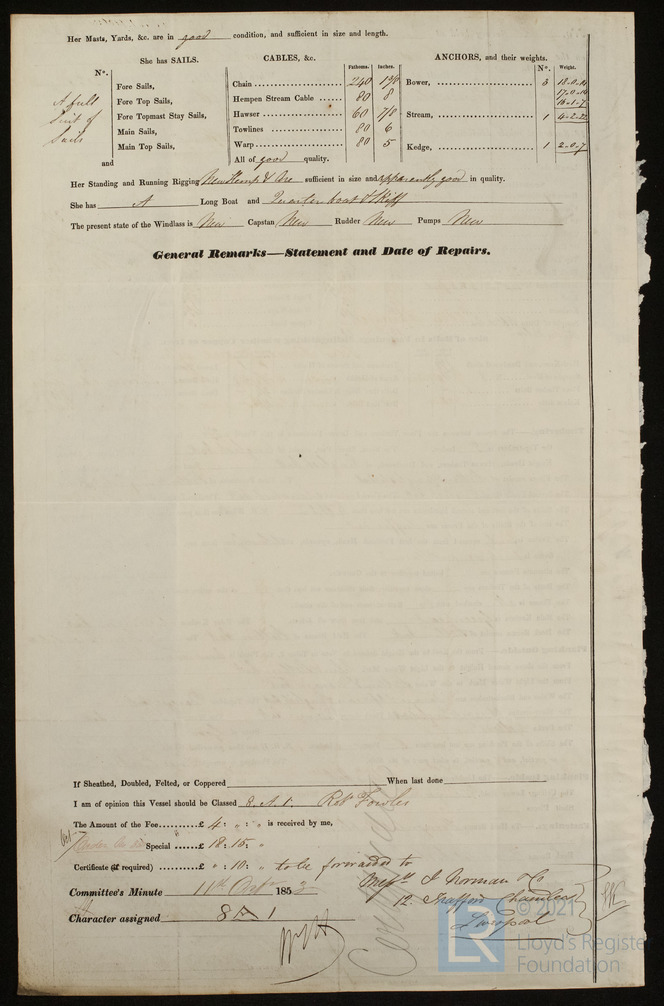 Her Masts, Yards, &c. are in good condition, and sufficient in size and length.
She has SAILS.
CABLES, &c.
Fathoms. Inches.
ANCHORS, and their weights.
Nº. Weight.
Nº.
A full
Suit of
Sails
Fore Sails,
Fore Top Sails,
Fore Topmast Stay Sails,
Main Sails,
Main Top Sails,
and
Chain 240
Hempen Stream Cable 80 8
Hawser 60
Towlines 80 6
Warp 80 5
All of good quality.
Bower, 3
Stream, 1
Kedge, 1 2-0-7
Her Standing and Running Rigging New Hemp & sufficient in size and apparently good in quality.
She has A Long Boat and Quarter boat & Skiff
The present state of the Windlass is New Capstan New Rudder New Pumps New
General Remarks—Statement and Date of Repairs.
If Sheathed, Doubled, Felted, or Coppered When last done
I am of opinion this Vessel should be Classed 8. A. 1. Robt Fowler
The Amount of the Fee £ 4: „ : „ is received by me,
Special £ 18: 15: „
Certificate (if required) £ „ : 10: „ to be forwarded to
Messrs J Norman & Co
12. Stafford Chambers
Liverpool
Committee's Minute 11th Octr 1853
Character assigned 8 A 1
© 2021
LR
Lloyd's Register
Foundation